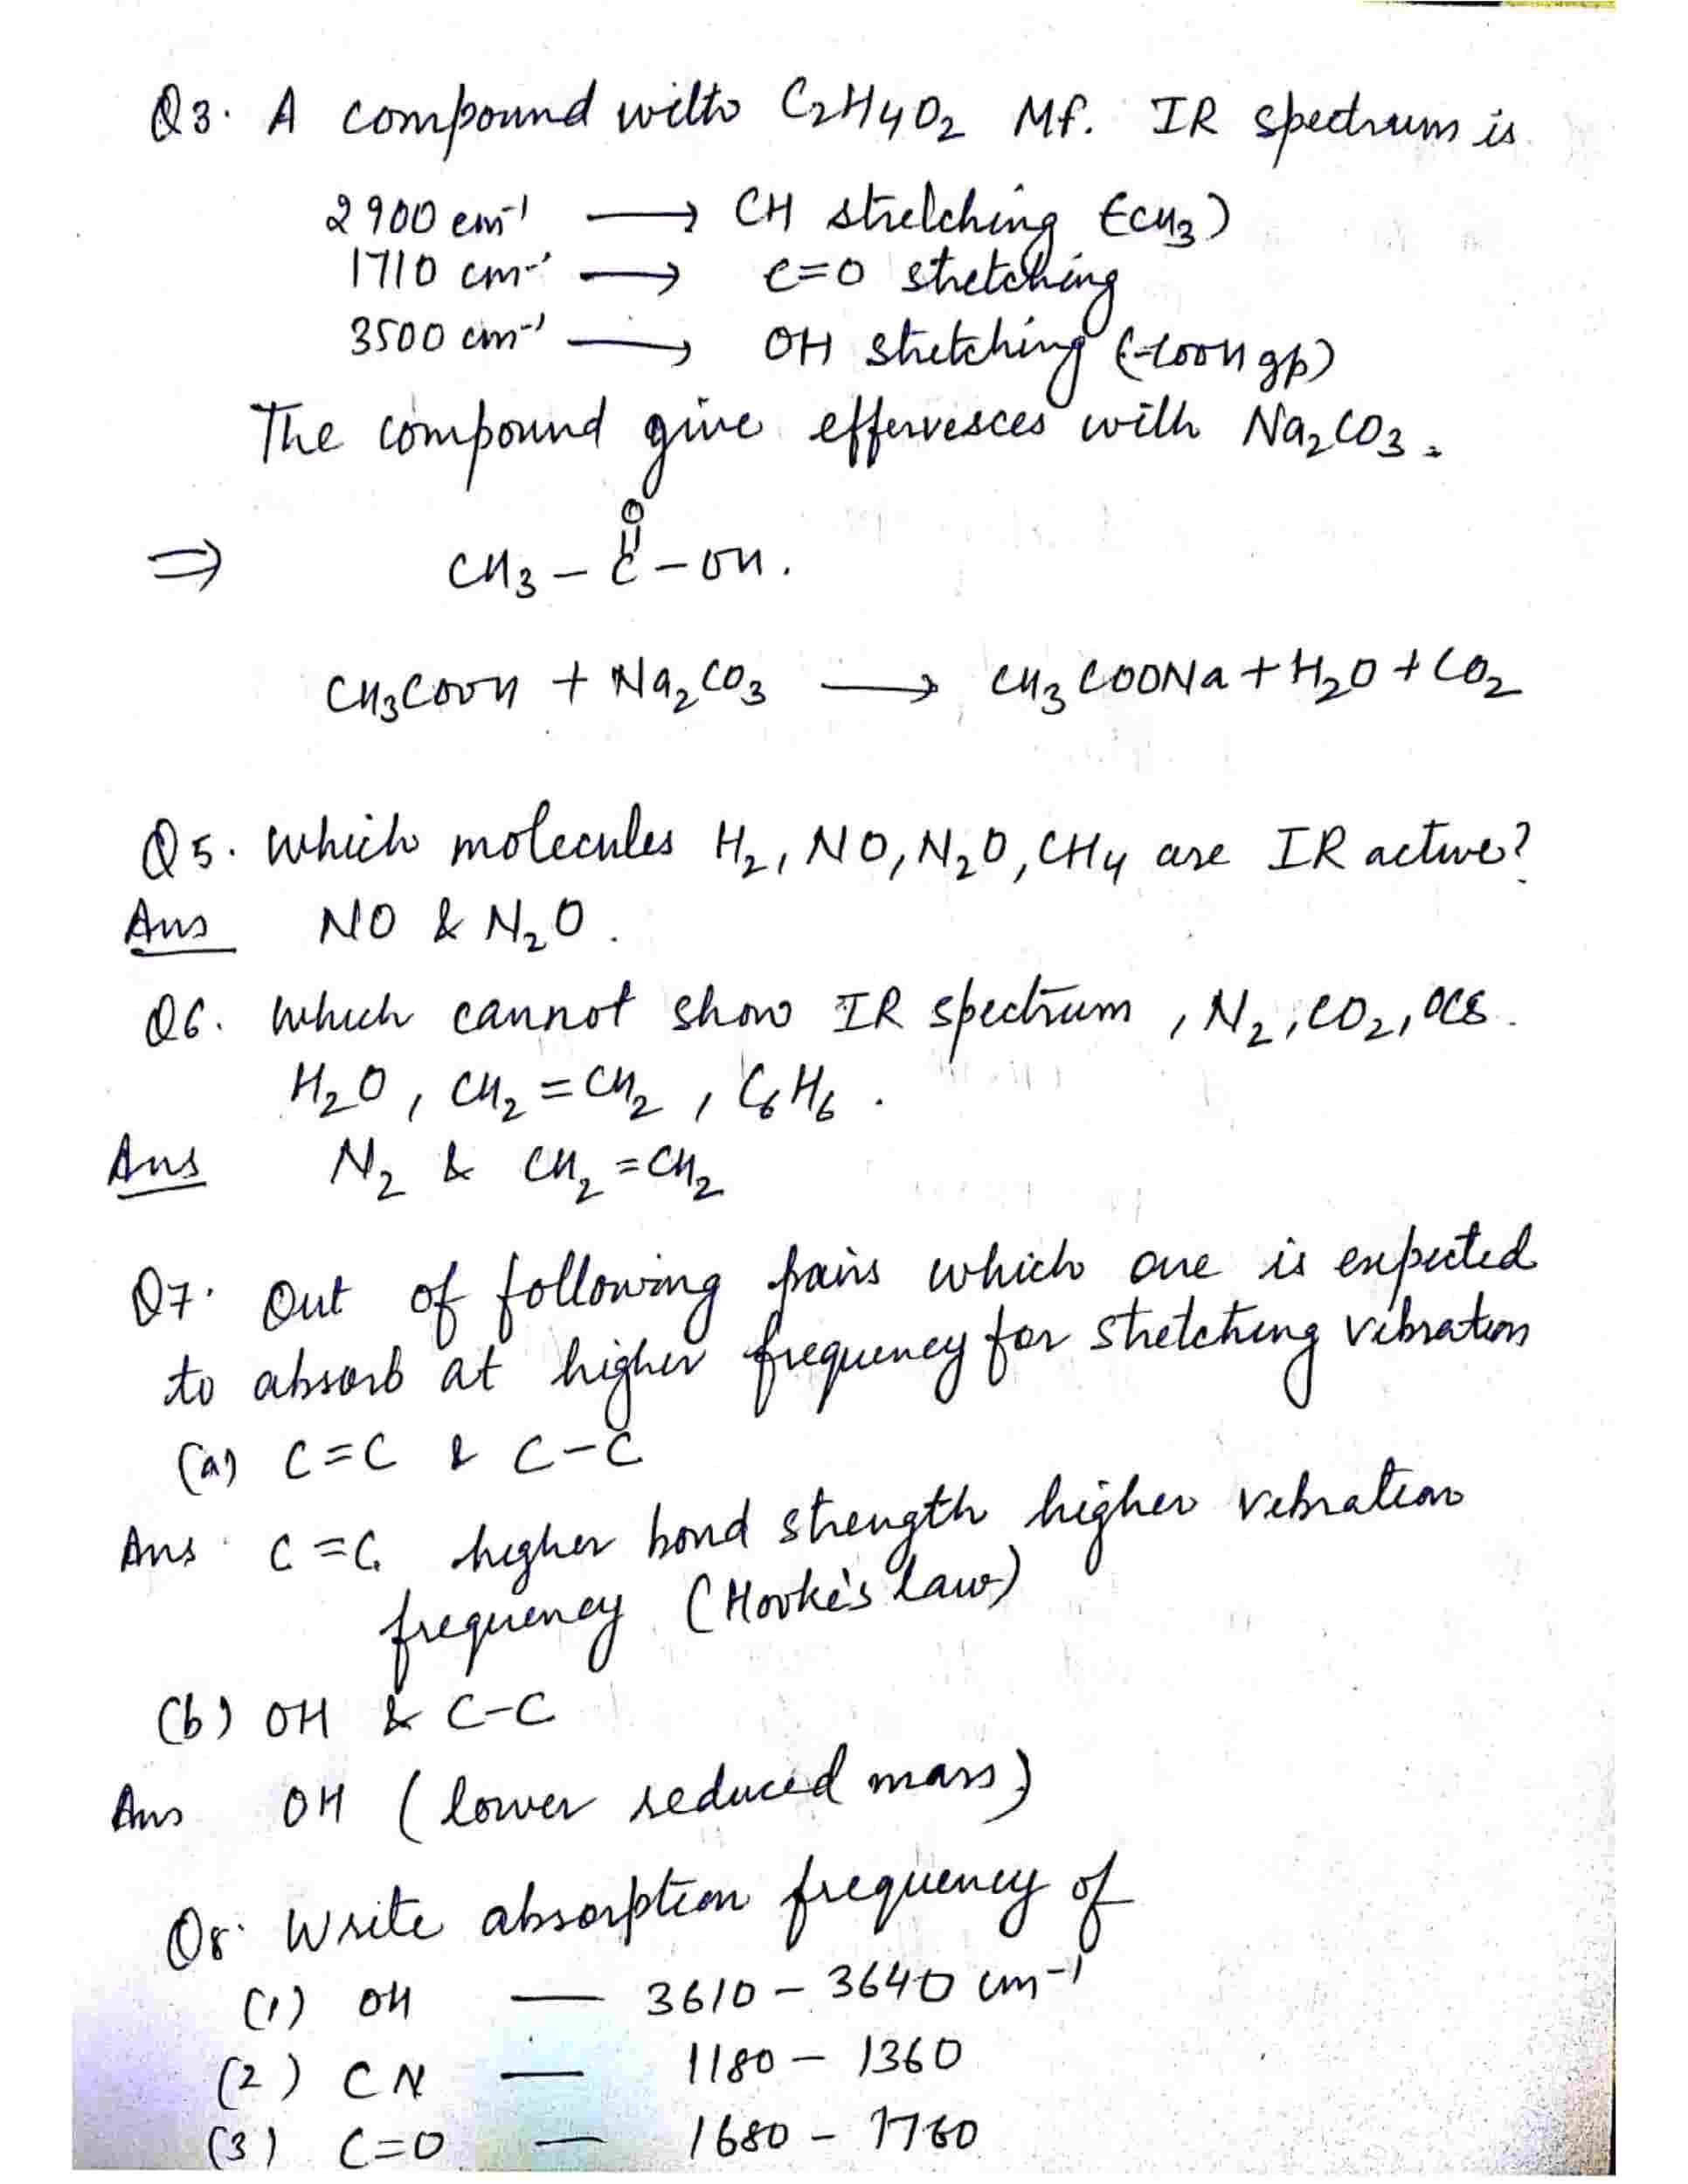 Q3. A compound with C2H4O2 Mf. IR spectrum is
2900 cm-1 → CH stretching (-CH3)
1710 cm-1 → C=O stretching
3500 cm-1 → OH stretching (-COOH gp)
The compound give effervesces with Na2CO3.
⇒ CH3 - C(=O) - OH.
CH3COOH + Na2CO3 → CH3COONa + H2O + CO2
Q5. Which molecules H2, NO, N2O, CH4 are IR active?
Ans NO & N2O.
Q6. Which cannot show IR spectrum, N2, CO2, OCS.
H2O, CH2=CH2, C6H6.
Ans N2 & CH2=CH2
Q7. Out of following pairs which one is expected
to absorb at higher frequency for stretching vibration
(a) C=C & C-C
Ans C=C higher bond strength higher vibration
frequency (Hooke's law)
(b) OH & C-C
Ans OH (lower reduced mass)
Q8. Write absorption frequency of
(1) OH — 3610 - 3640 cm-1
(2) CN — 1180 - 1360
(3) C=O — 1680 - 1760